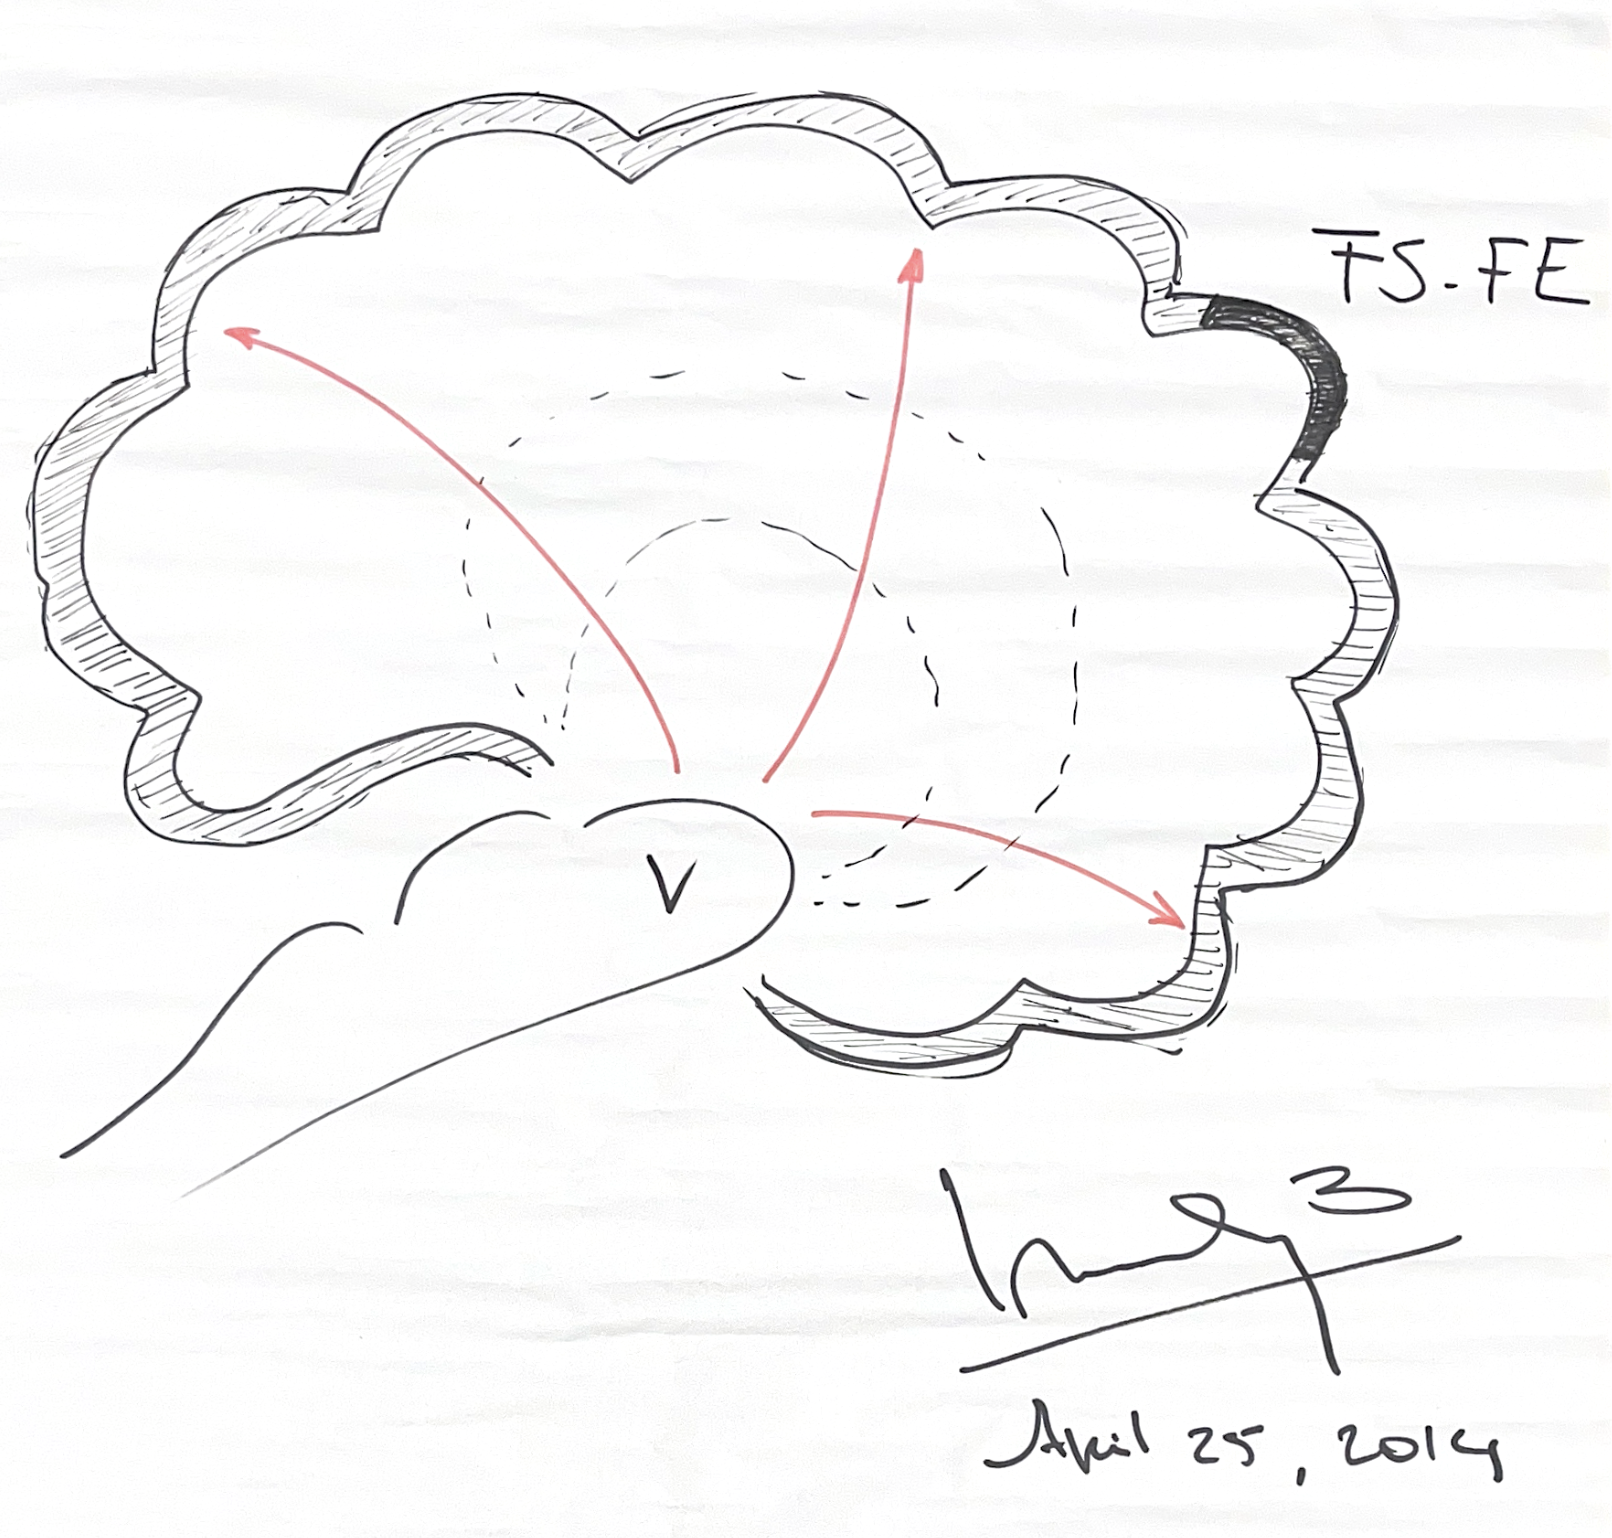 FS-FE
V
April 25, 2014